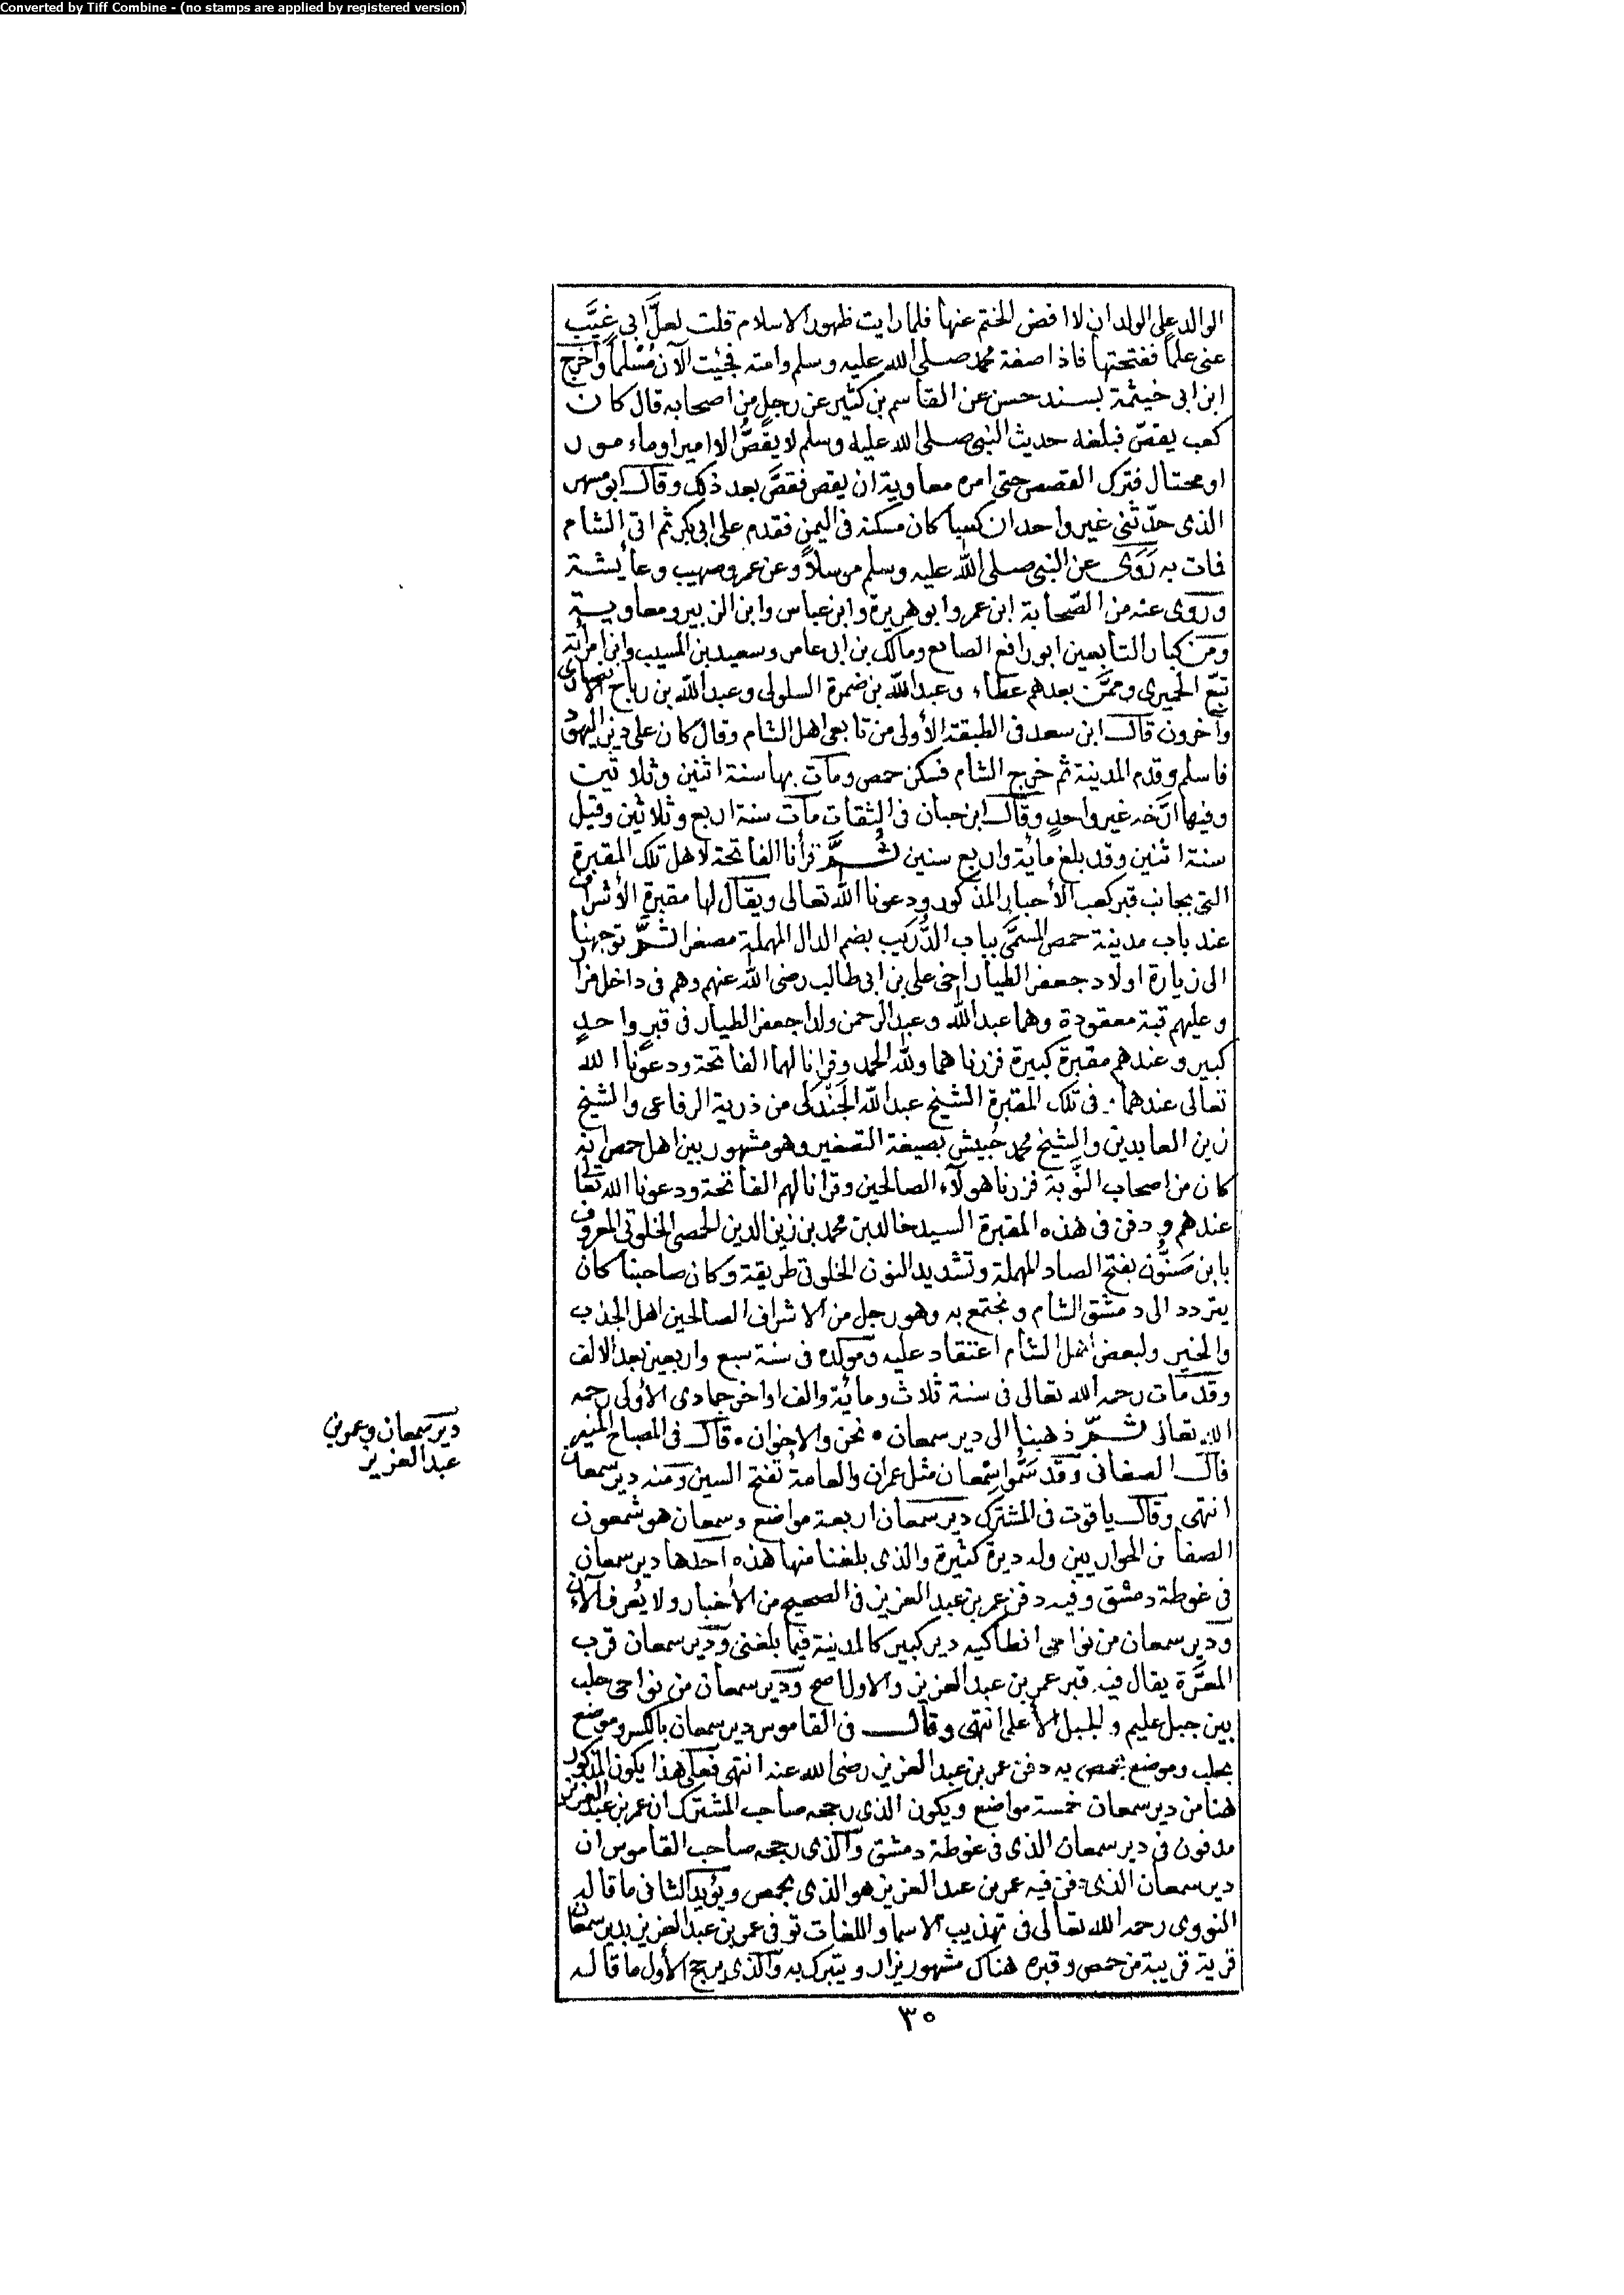 Converted by Tiff Combine - (no stamps are applied by registered version)
الوالد على الولد ان لا افض الختم عنها فلما رايت ظهور الاسلام قلت لعلَّ ابي غيَّب
عنى علما ففتحتها فاذا صفة محمد صلى الله عليه وسلم وامته فجئت الآن مُسْلماً وأخرج
ابن ابى خيثمة بسند حسن عن القاسم بن كثير عن رجل من اصحابه قال كان
كعب يقصّ فبلغه حديث النبى صلى الله عليه وسلم لا يقصُّ الا امير او مامور
او محتال فترك القصص حتى امره معاوية ان يقص فقصَّ بعد ذلك وقال ابو مسهر
الذى حدّثنى غير واحد ان كعبا كان مسكنه فى اليمن فقدم على ابى بكر ثم اتى الشام
فمات به رَوَى عن النبى صلى الله عليه وسلم مرسلاً وعن عمر وصهيب وعايشة
وروى عنه من الصّحابة ابن عمر وابو هريرة وابن عباس وابن الزبير ومعاوية
ومن كبار التابعين ابو رافع الصايغ ومالك بن ابى عامر وسعيد بن المسيب وابن امرأته
تبّع الحميرى وممَّن بعدهم عطاء وعبد الله بن ضمرة السلولى وعبد الله بن رباح الانصارى
وآخرون قال ابن سعد فى الطبقة الأولى من تابعى اهل الشام وقال كان على دين اليهود
فاسلم وقدم المدينة ثم خرج الشام فسكن حمص ومات بها سنة اثنين وثلاثين
وفيها ارَّخه غير واحدٍ وقال ابن حبان فى الثقات مات سنة اربع وثلاثين وقيل
سنة اثنين وقد بلغ مائة واربع سنين ثُمَّ قرأنا الفاتحة لاهل تلك المقبرة
التى بجانب قبر كعب الأحبار المذكور ودعونا الله تعالى ويقال لها مقبرة الأشراف
عند باب مدينة حمص المسمَّى بباب الدُّرَيب بضم الدال المهملة مصغرا ثمَّ توجهنا
الى زيارة اولاد جعفر الطيار اخى على بن ابى طالب رضى الله عنهم وهم فى داخل مزار
وعليهم قبة معقودة وهما عبد الله وعبد الرحمن ولدا جعفر الطيار فى قبرٍ واحدٍ
كبير وعندهم مقبرة كبيرة فزرناهما ولله الحمد وقرانا لهما الفاتحة ودعونا الله
تعالى عندهما . فى تلك المقبرة الشيخ عبد الله الجَنْدَلى من ذرية الرفاعى والشيخ
زين العابدين والشيخ محمد حُبيش بصيغة التصغير وهو مشهور بين اهل حمص انه
كان من اصحاب النَّوبة فزرنا هولآء الصالحين وقرانا لهم الفاتحة ودعونا الله تعالى
عندهم ودفن فى هذه المقبرة السيد خالد بن محمد بن زين الدين الحمصى الخلوتى المعروف
بابن صَنُّون بفتح الصاد المهملة وتشديد النون الخلوتى طريقة وكان صاحبنا كان
يتردد الى دمشق الشام ونجتمع به وهو رجل من الاشراف الصالحين اهل الجذب
والخير ولبعض اهل الشام اعتقاد عليه ومولده فى سنة سبع واربعين بعد الالف
وقد مات رحمه الله تعالى فى سنة ثلاث ومائة والف اواخر جمادى الأولى رحمه
الله تعالى ثمّ ذهبنا الى دير سمعان • نحن والاخوان • قال فى المصباح المنير
قال الصغانى وقد سَمُّوا سِمْعان مثل عمران والعامة تفتح السين ومنه دير سمعان
انتهى وقال ياقوت فى المشترك دير سمعان اربعة مواضع وسمعان هو شمعون
الصفا من الحواريين وله ديرة كثيرة والذى بلغنا منها هذه احدها دير سمعان
فى غوطة دمشق وفيه دفن عمر بن عبد العزيز فى الصحيح من الأخبار ولا يُعرف الآن
ودير سمعان من نواحى انطاكيه دير كبير كالمدينة فيما بلغنى ودير سمعان قرب
المعرَّة يقال فيه قبر عمر بن عبد العزيز والاول اصح ودير سمعان من نواحى حلب
بين جبل عليم والجبل الأعلى انتهى وقال فى القاموس دير سمعان بالكسر وموضع
بحلب وموضع بحمص به دفن عمر بن عبد العزيز رضى الله عنه انتهى فعلى هذا يكون المذكور
هنا من دير سمعان خمسة مواضع ويكون الذى رجحه صاحب المشترك ان عمر بن عبد العزيز
مدفون فى دير سمعان الذى فى غوطة دمشق والذى رجحه صاحب القاموس ان
دير سمعان الذى دفن فيه عمر بن عبد العزيز هو الذى بحمص ويؤيد الثانى ما قاله
النووى رحمه الله تعالى فى تهذيب الاسما واللغات توفى عمر بن عبد العزيز بدير سمعان
قرية قريبة من حمص وقبره هناك مشهور يزار ويتبرك به والذى يرجح الأول ما قاله
دير سمعان وعمر بن
عبد العزيز
٣٥